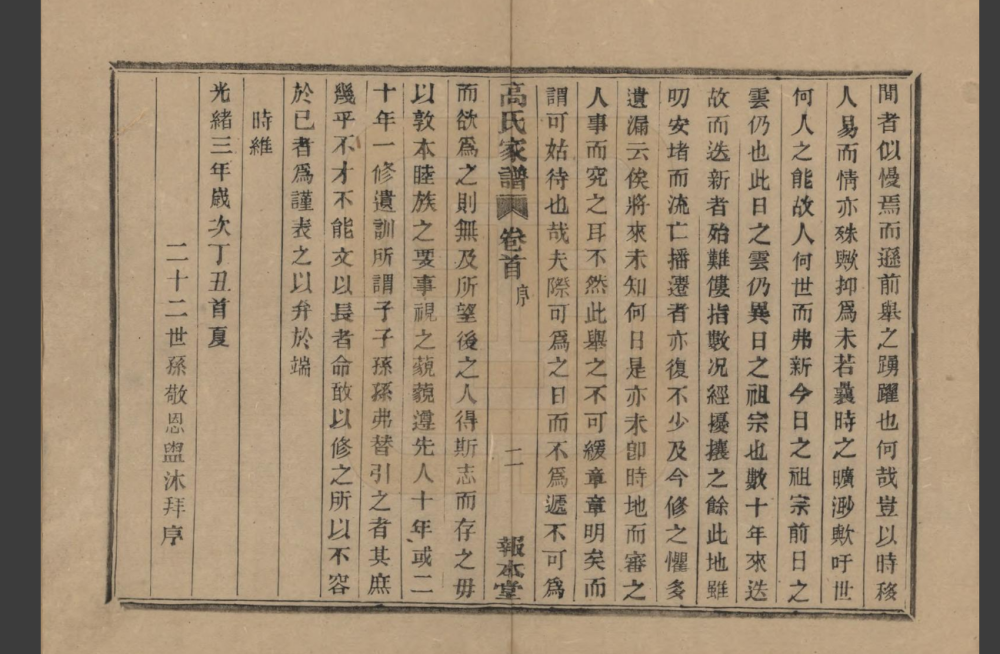 間者似慢焉而遜前舉之踴躍也何哉豈以時移
人易而情亦殊歟抑爲未若曩時之曠渺歟吁世
何人之能故人何世而弗新今日之祖宗前日之
雲仍也此日之雲仍異日之祖宗也數十年來迭
故而迭新者殆難僂指數况經擾攘之餘此地雖
叨安堵而流亡播遷者亦復不少及今修之懼多
遺漏云俟將來未知何日是亦未卽時地而審之
人事而究之耳不然此舉之不可緩章章明矣而
謂可姑待也哉夫際可爲之日而不爲遞不可爲
高氏家譜 卷首 序 二 報本堂
而欲爲之則無及所望後之人得斯志而存之毋
以敦本睦族之要事視之藐藐遵先人十年或二
十年一修遺訓所謂子子孫孫弗替引之者其庶
幾乎不才不能文以長者命敢以修之所以不容
於已者爲謹表之以弁於端
時維
光緒三年歲次丁丑首夏
二十二世孫敬恩盥沐拜序